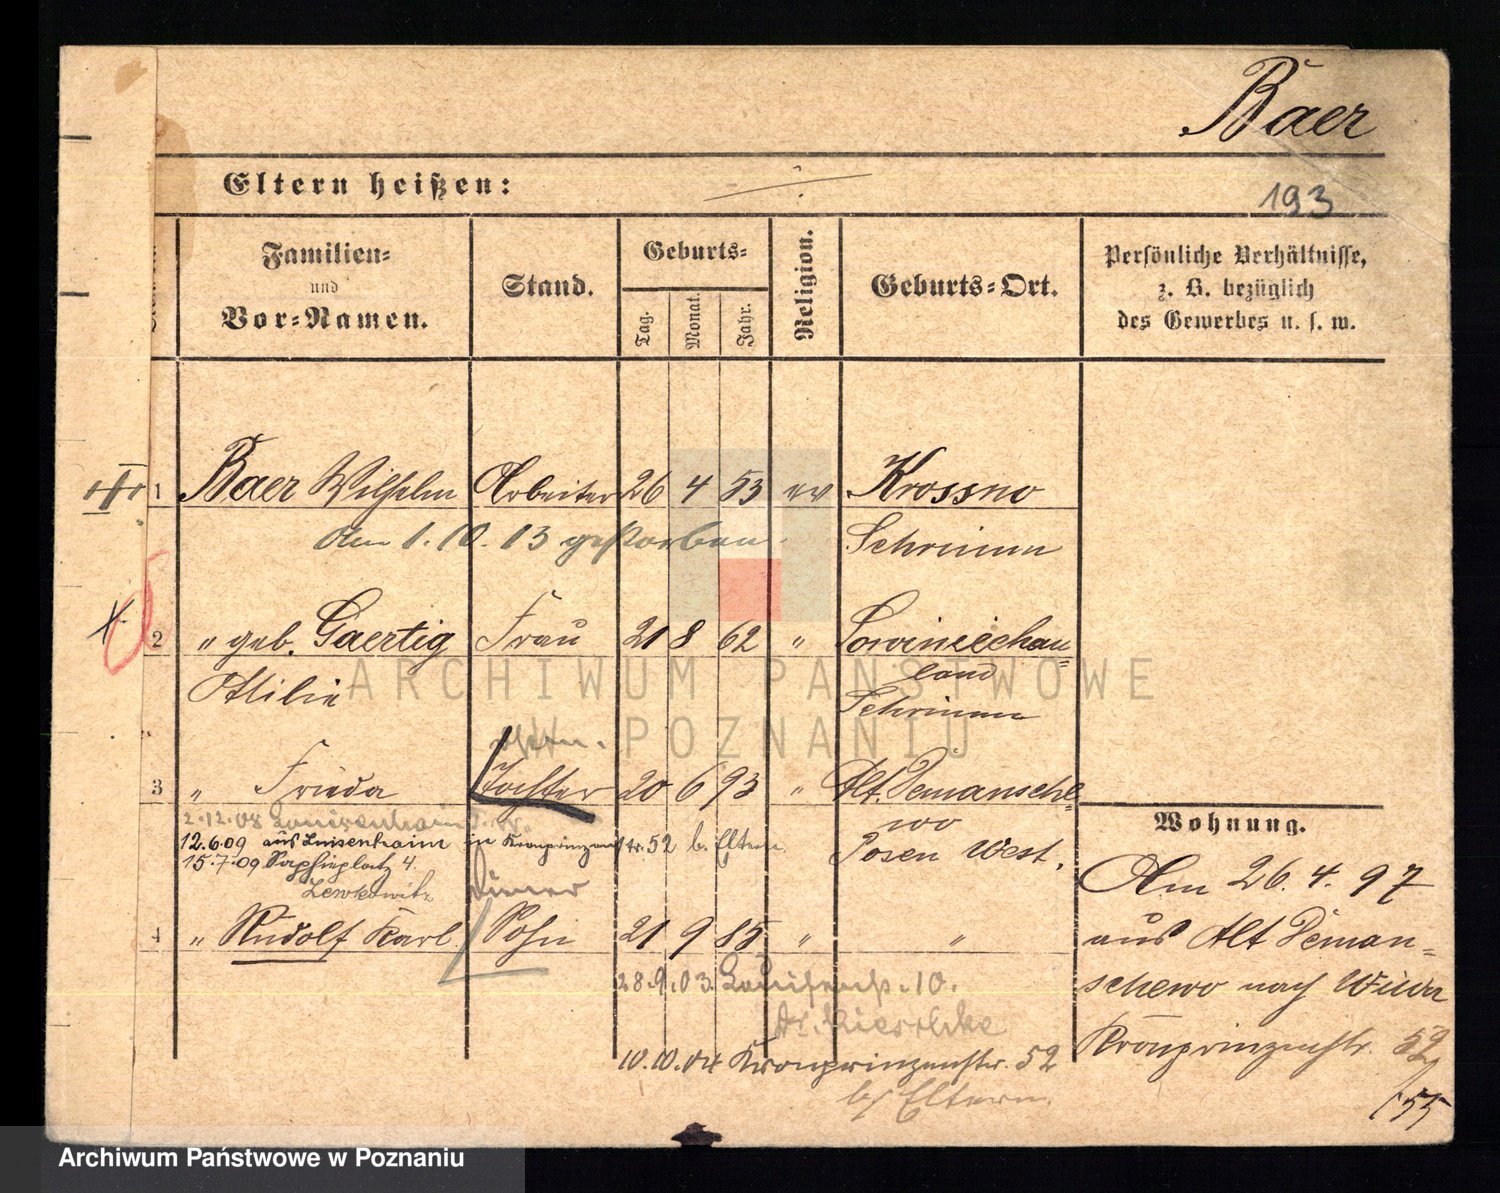 Baer
Eltern heißen:
193
Familien-
und
Vor-Namen.
Stand.
Geburts-
Tag.
Monat.
Jahr.
Religion.
Geburts-Ort.
Persönliche Verhältnisse,
z. B. bezüglich
des Gewerbes u. s. w.
1 Baer Wilhelm Arbeiter 26 4 53 ev Krossno
am 1.10.13 gestorben. Schrimm
2 " geb. Gaertig Frau 21 8 62 " Sowiniechau=
land
Ottilie Schrimm
3 " Frieda Tochter 20 6 93 " Alt. Demansche=
wo
Posen West.
2.12.08 Louisenhain
12.6.09 aus Luisenhain in Kronprinzenstr. 52 b. Eltern.
15.7.09 Sapiehaplatz 4.
Lewkowitz
Diener
4 " Rudolf Karl. Sohn 21 9 85 " "
28.9.03. Louisenstr. 10.
10.10.04 Kronprinzenstr. 52
bei Eltern.
Wohnung.
Am 26.4.97
aus Alt Deman=
schewo nach Wilda
Kronprinzenstr. 52/
/55
ARCHIWUM PAŃSTWOWE
W POZNANIU
Archiwum Państwowe w Poznaniu